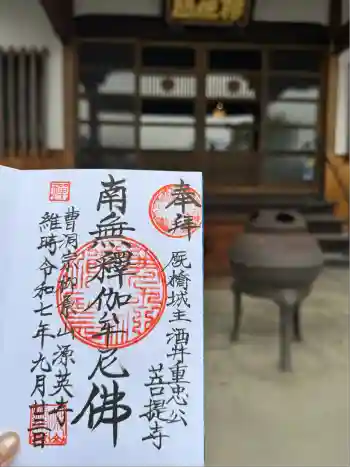 奉拝
厩橋城主酒井重忠公
菩提寺
南無釋伽牟尼佛
曹洞宗御泉山源英寺
維時令和七年九月廿三日